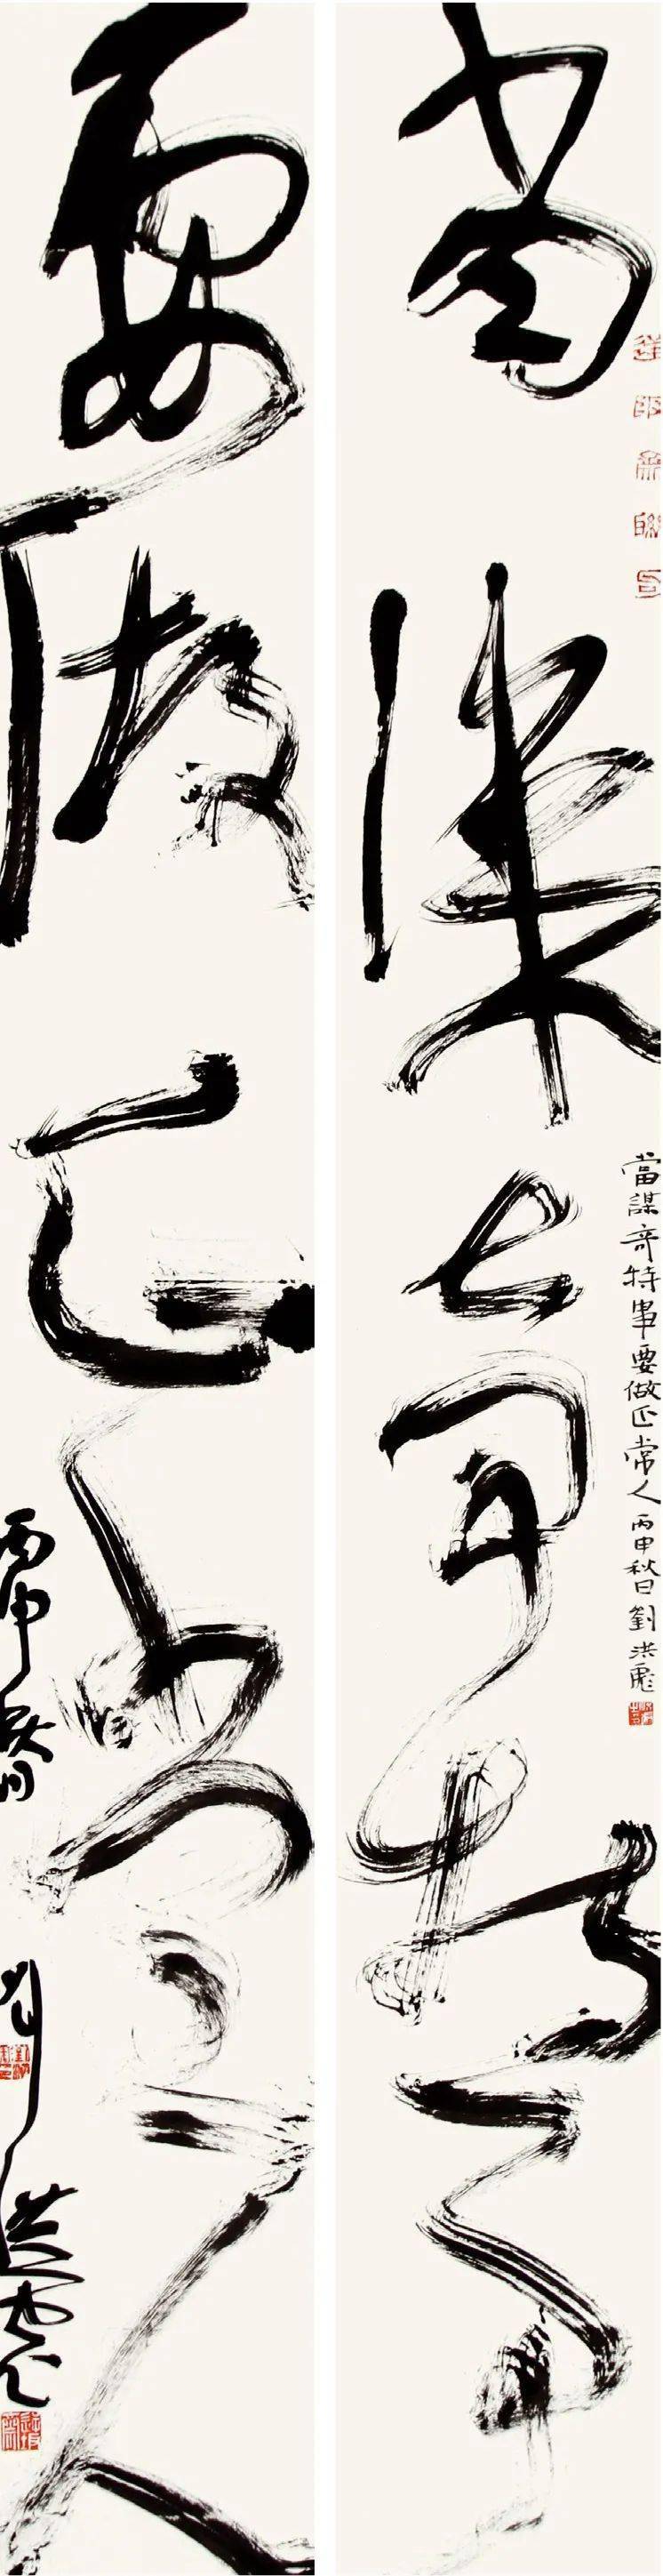 當謀奇特事
當謀奇特事要做正常人丙申秋日劉洪彪
要做正常人
丙申秋月
劉洪彪